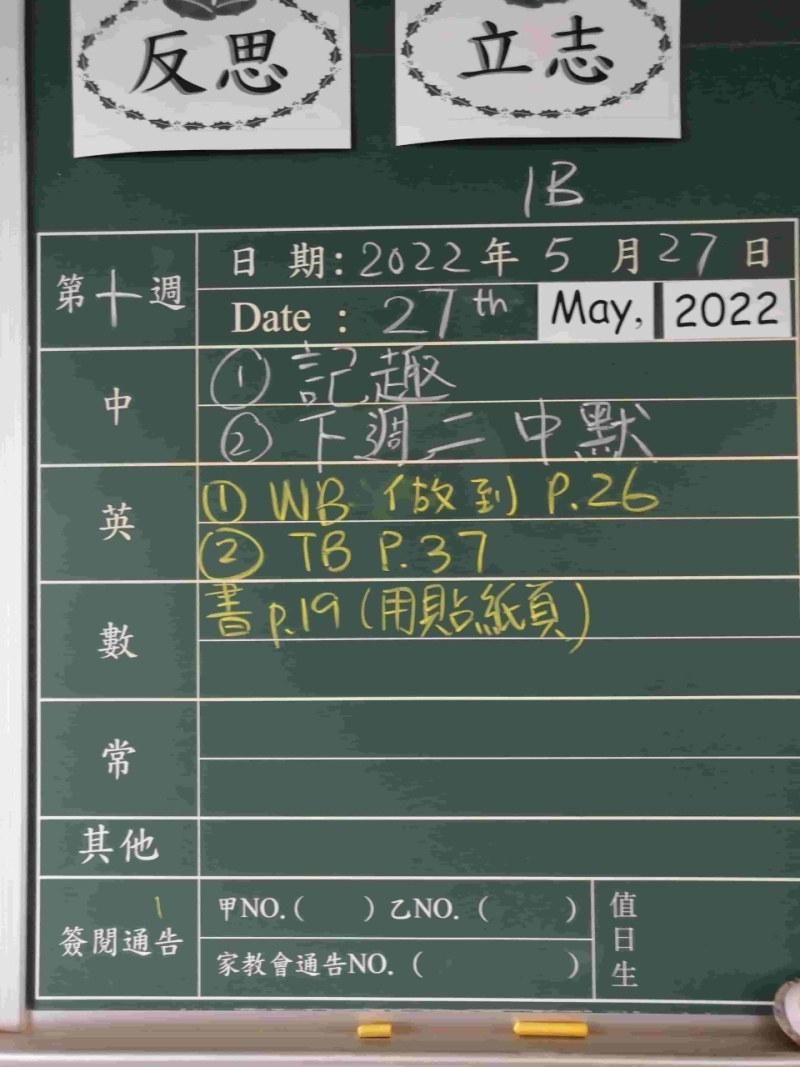 反思
立志
1B
第十週
日 期：2022 年 5 月 27 日
Date : 27th May, 2022
中
① 記趣
② 下週二 中默
英
① WB 做到 P.26
② TB P.37
數
書 p.19 (用貼紙頁)
常
其他
簽閱通告
1
甲NO.( ) 乙NO. ( )
家教會通告NO. ( )
值日生